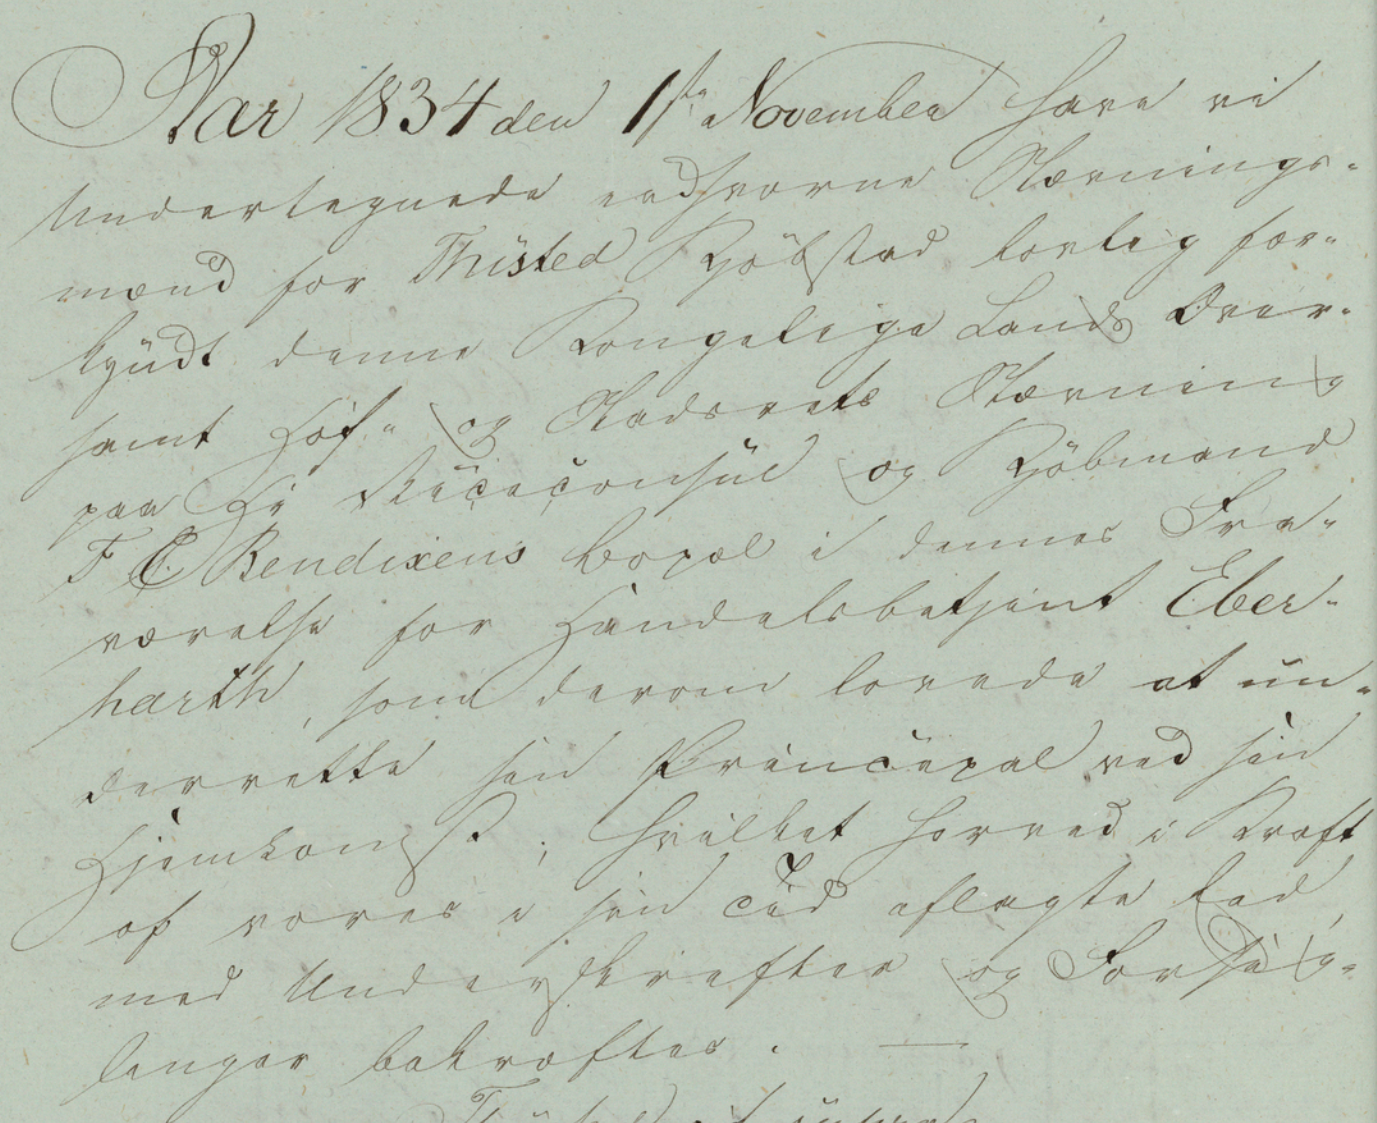 Aar 1834 den 1ste November have vi
Undertegnede eedsvorne Stævnings-
mænd for Thisted Kjöbstad lovlig for-
kyndt denne Kongelige Lands Over-
samt Hof- og Stadsrets Stævning
paa Hr Viceconsul og Kjöbmand
F C Bendixens Bopæl i dennes Fra-
værelse for Handelsbetjent Eber-
harth, som derom lovede at un-
derrette sin Principal ved sin
Hjemkomst; hvilket herved i Kraft
af vores i sin Tid aflagte Eed,
med Underskrifter og Forseig-
linger bekræftes. —
Thisted ut supra